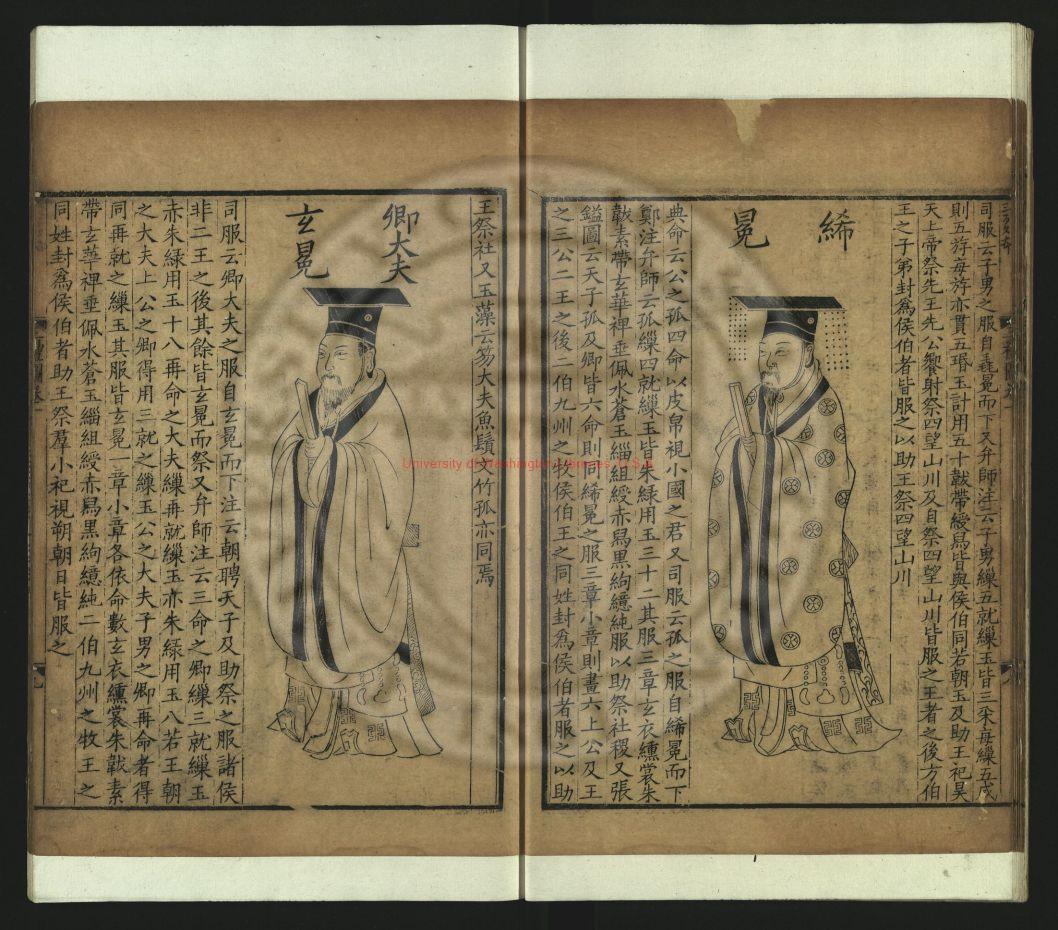 司服云子男之服自毳冕而下又弁師注云子男繅五就繅玉皆三采每繅五成
則五斿每斿亦貫五㻉玉計用五十韍帶綬舄皆與侯伯同若朝王及助王祀昊
天上帝祭先王先公饗射祭四望山川及自祭四望山川皆服之王者之後方伯
王之子弟封為侯伯者皆服之以助王祭四望山川
絺
冕
典命云公之孤四命以皮帛視小國之君又司服云孤之服自絺冕而下
鄭注弁師云孤繅四就繅玉皆朱綠用玉三十二其服三章玄衣纁裳朱
韍素帶玄華襌垂佩水蒼玉緇組綬赤舄黒絇繶純服以助祭社稷又張
鎰圖云天子孤及卿皆六命則同絺冕之服三章小章則畫六上公及王
之三公二王之後二伯九州之牧侯伯王之同姓封為侯伯者服之以助
王祭社又玉藻云笏大夫魚鬚文竹孤亦同焉
卿大夫
玄冕
司服云卿大夫之服自玄冕而下注云朝聘天子及助祭之服諸侯
非二王之後其餘皆玄冕而祭又弁師注云三命之卿繅三就繅玉
赤朱綠用玉十八再命之大夫繅再就繅玉亦朱綠用玉八若王朝
之大夫上公之卿得用三就之繅玉公之大夫子男之卿再命者得
同再就之繅玉其服皆玄冕一章小章各依命數玄衣纁裳朱韍素
帶玄華襌垂佩水蒼玉緇組綬赤舄黒絇繶純二伯九州之牧王之
同姓封為侯伯者助王祭羣小祀視朔朝日皆服之
University of Washington Libraries, U.S.A.